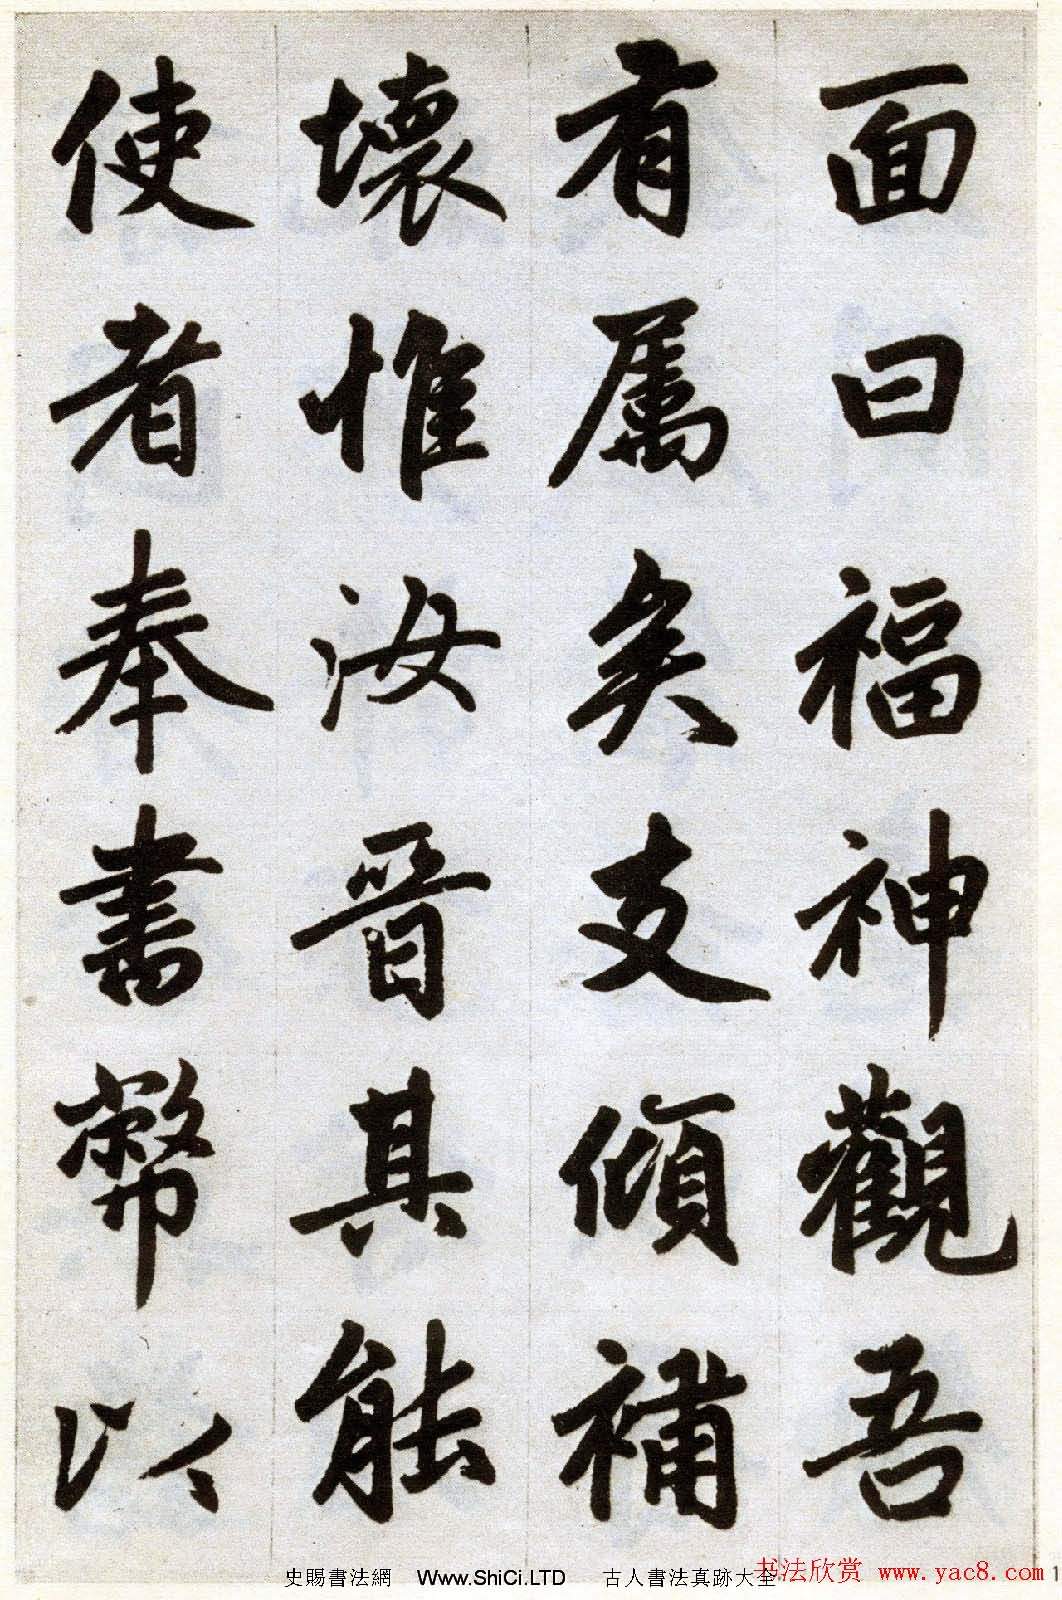 面曰福神觀吾
有属矣支傾補
壞惟汝晉其能
使者奉書幣以
史賜書法網 Www.ShiCi.LTD 古人書法真跡大全
书法欣赏 www.yac8.com
1